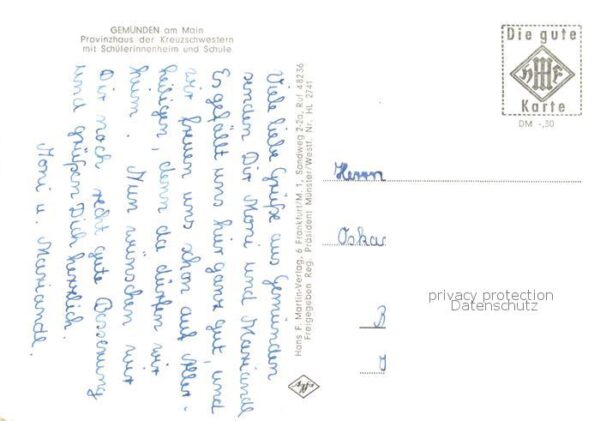 GEMÜNDEN am Main
Provinzhaus der Kreuzschwestern
mit Schülerinnenheim und Schule
Viele liebe Grüße aus Gemünden
senden Dir Moni und Mariandl
Es gefällt uns hier ganz gut, und
wir freuen uns schon auf Aller-
heiligen, denn da dürfen wir
heim. Nun wünschen wir
Dir noch recht gute Besserung
und grüßen Dich herzlich.
Moni u. Mariandl.
Hans F. Martin-Verlag, 6 Frankfurt/M. 1, Sandweg 2-2a, Ruf 48236
Freigegeben Reg. Präsident Münster/Westf. Nr. HL 2741
Die gute
HMF
Karte
DM -,30
Herrn
Oskar
B
J
privacy protection
Datenschutz